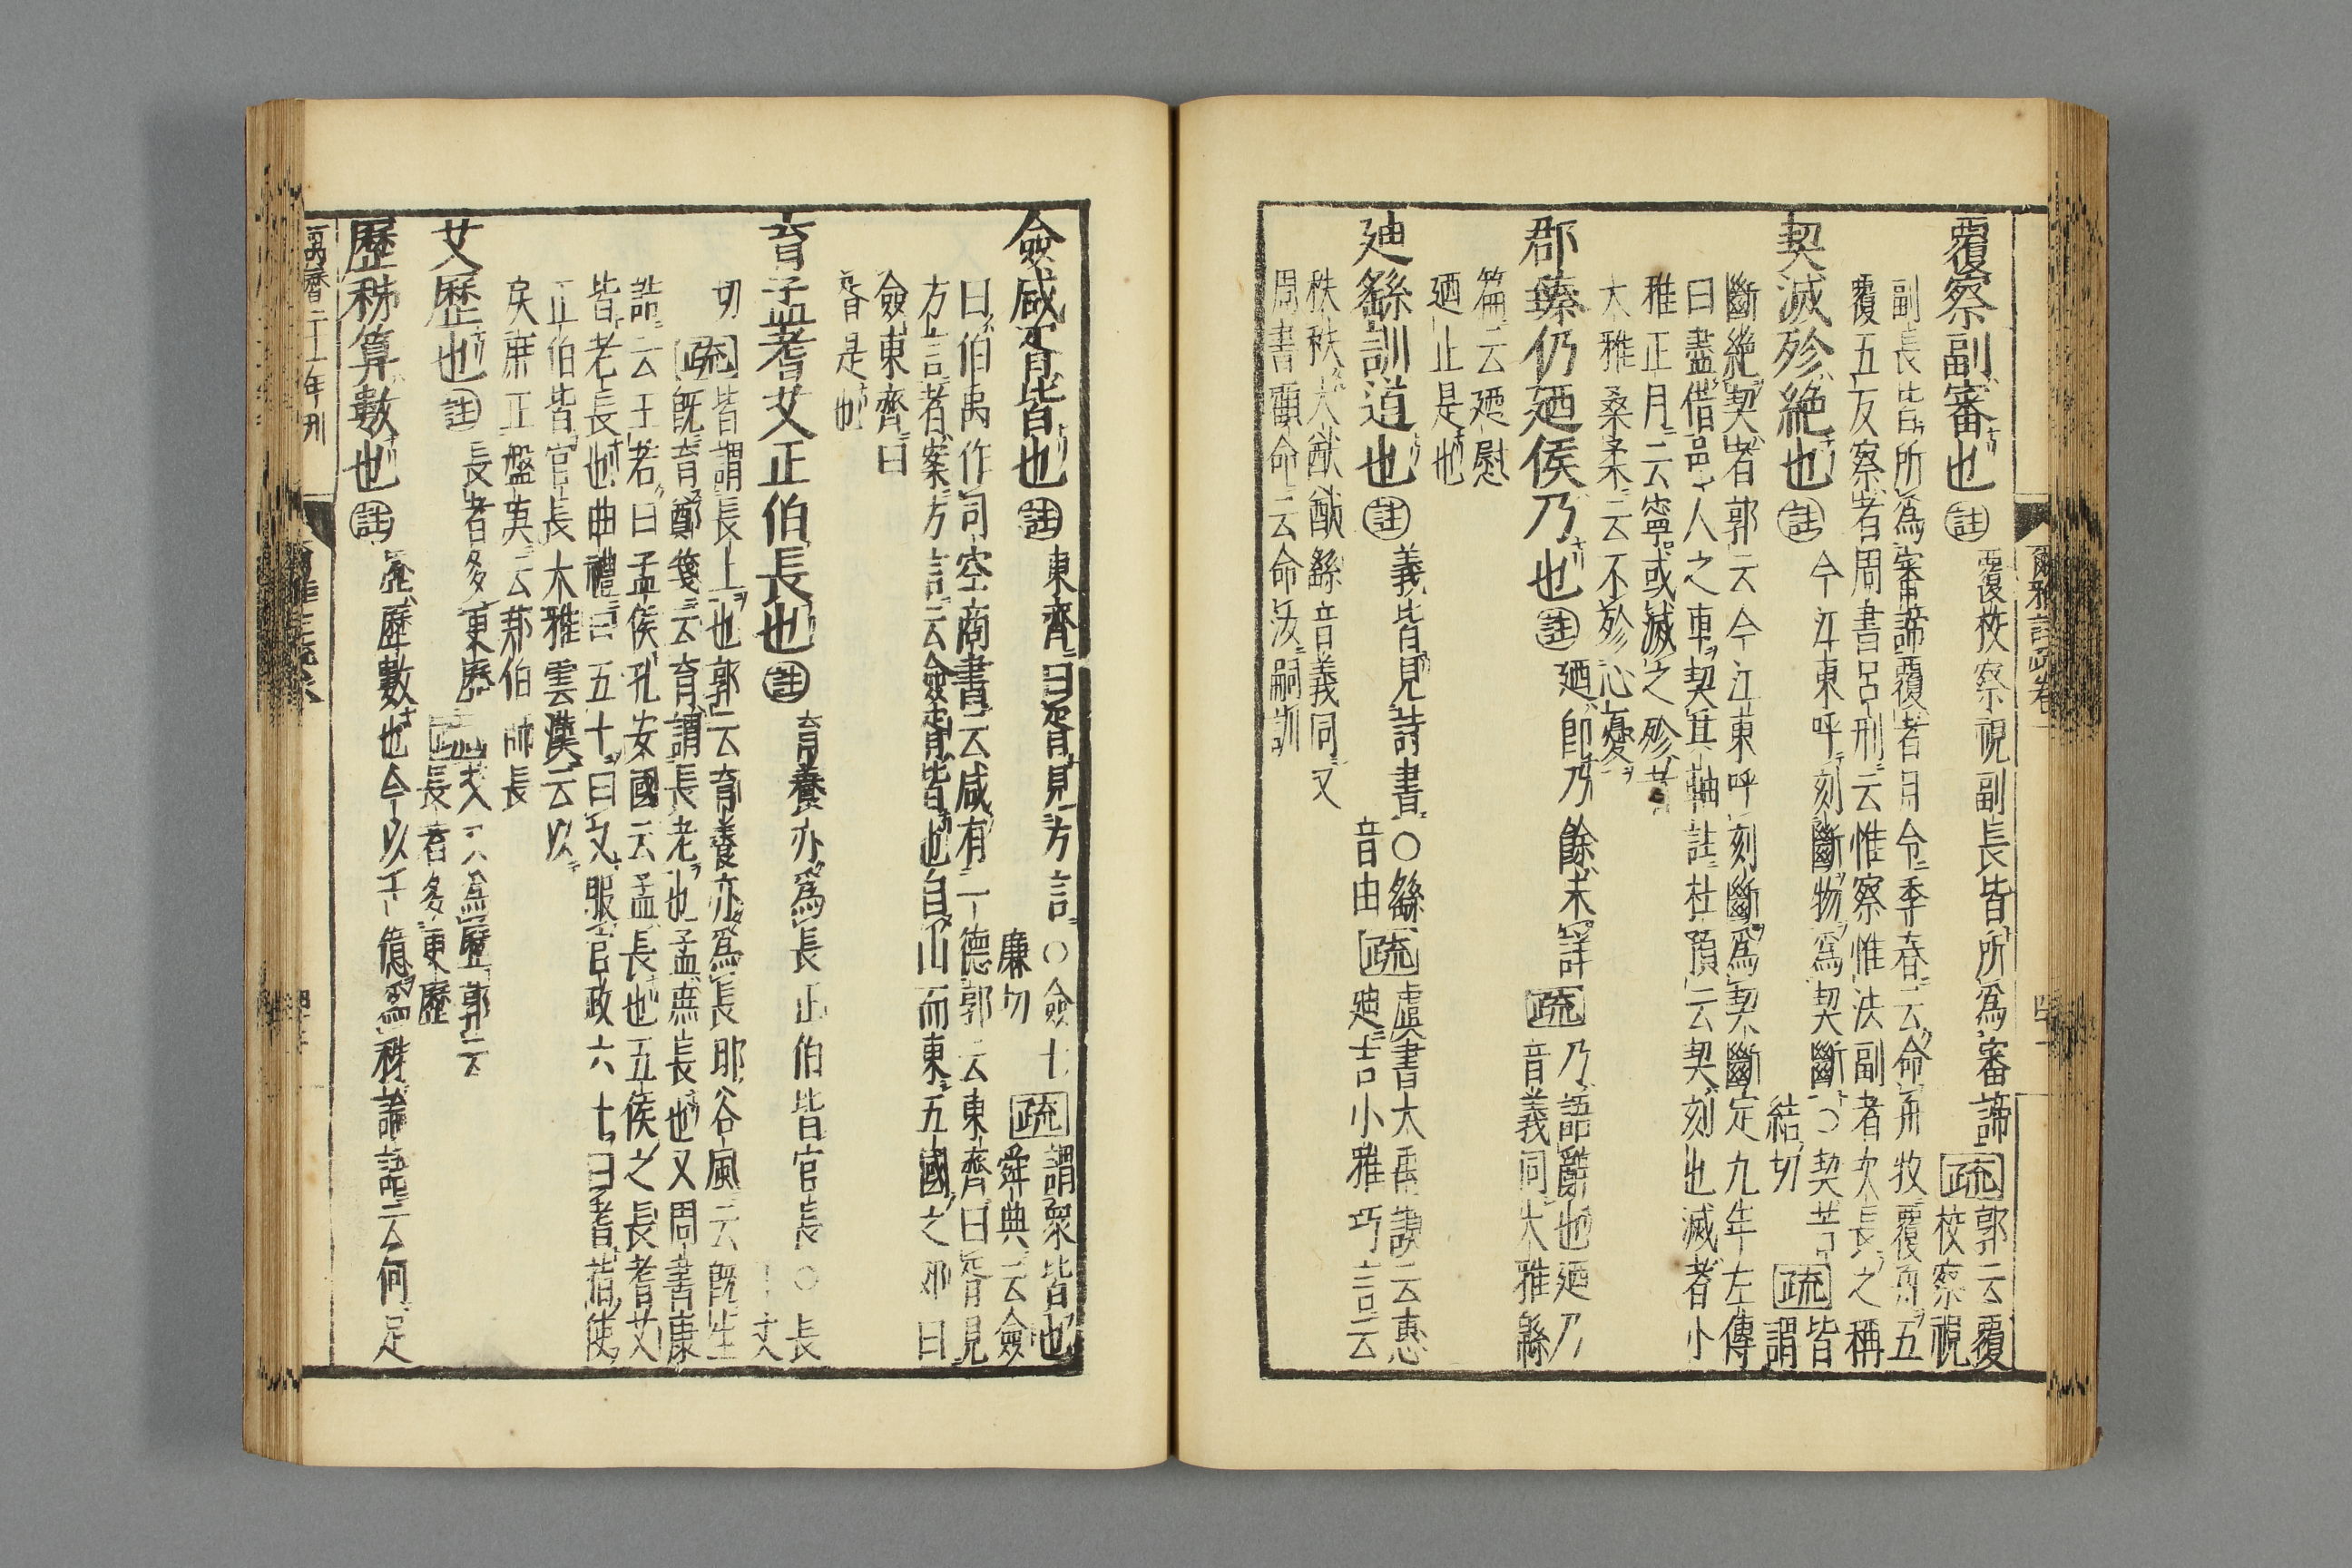 覆察副審也註覆校察視副長皆所爲審諦疏郭云覆
校察視
副長皆所爲審諦覆者月令季春云命舟牧覆舟五
覆五反察者周書呂刑云惟察惟法副者次長之稱
契滅殄絕也註今江東呼刻斷物爲契斷○契苦
結切疏皆
謂
斷絕契者郭云今江東呼刻斷爲契斷定九年左傳
曰盡借邑人之車契其軸註杜預云契刻也滅者小
雅正月云寧或滅之殄者
大雅桑柔云不殄心憂
郡臻仍廼侯乃也註廼即乃餘未詳疏乃語辭也廼乃
音義同大雅緜
篇云廼慰
廼止是也
迪繇訓道也註義皆見詩書○繇
音由疏虞書大禹謨云惠
迪吉小雅巧言云
秩秩大猷猷繇音義同又
周書顧命云命汝嗣訓
爾雅註疏卷一
僉咸胥皆也註東齊曰胥見方言○僉七
廉切疏謂衆皆也
舜典云僉
曰伯禹作司空商書云咸有一德郭云東齊曰胥見
方言者案方言云僉胥皆也自山而東五國之郊曰
僉東齊曰
胥是也
育孟耆艾正伯長也註育養亦爲長正伯皆官長○長
丁丈
切疏皆謂長上也郭云育養亦爲長耶谷風云旣生
旣育鄭箋云育謂長老也孟庶長也又周書康
誥云王若曰孟侯孔安國云孟長也五侯之長耆艾
皆老長也曲禮云五十曰艾服官政六十曰耆指使
正伯皆官長大雅雲漢云以
戾庶正盤庚云邦伯師長
艾歷也註長者多更歷疏艾又爲歷郭云
長者多更歷
歷秭算數也註歷歷數也今以千億爲秭論語云何足
萬曆二十一年刊